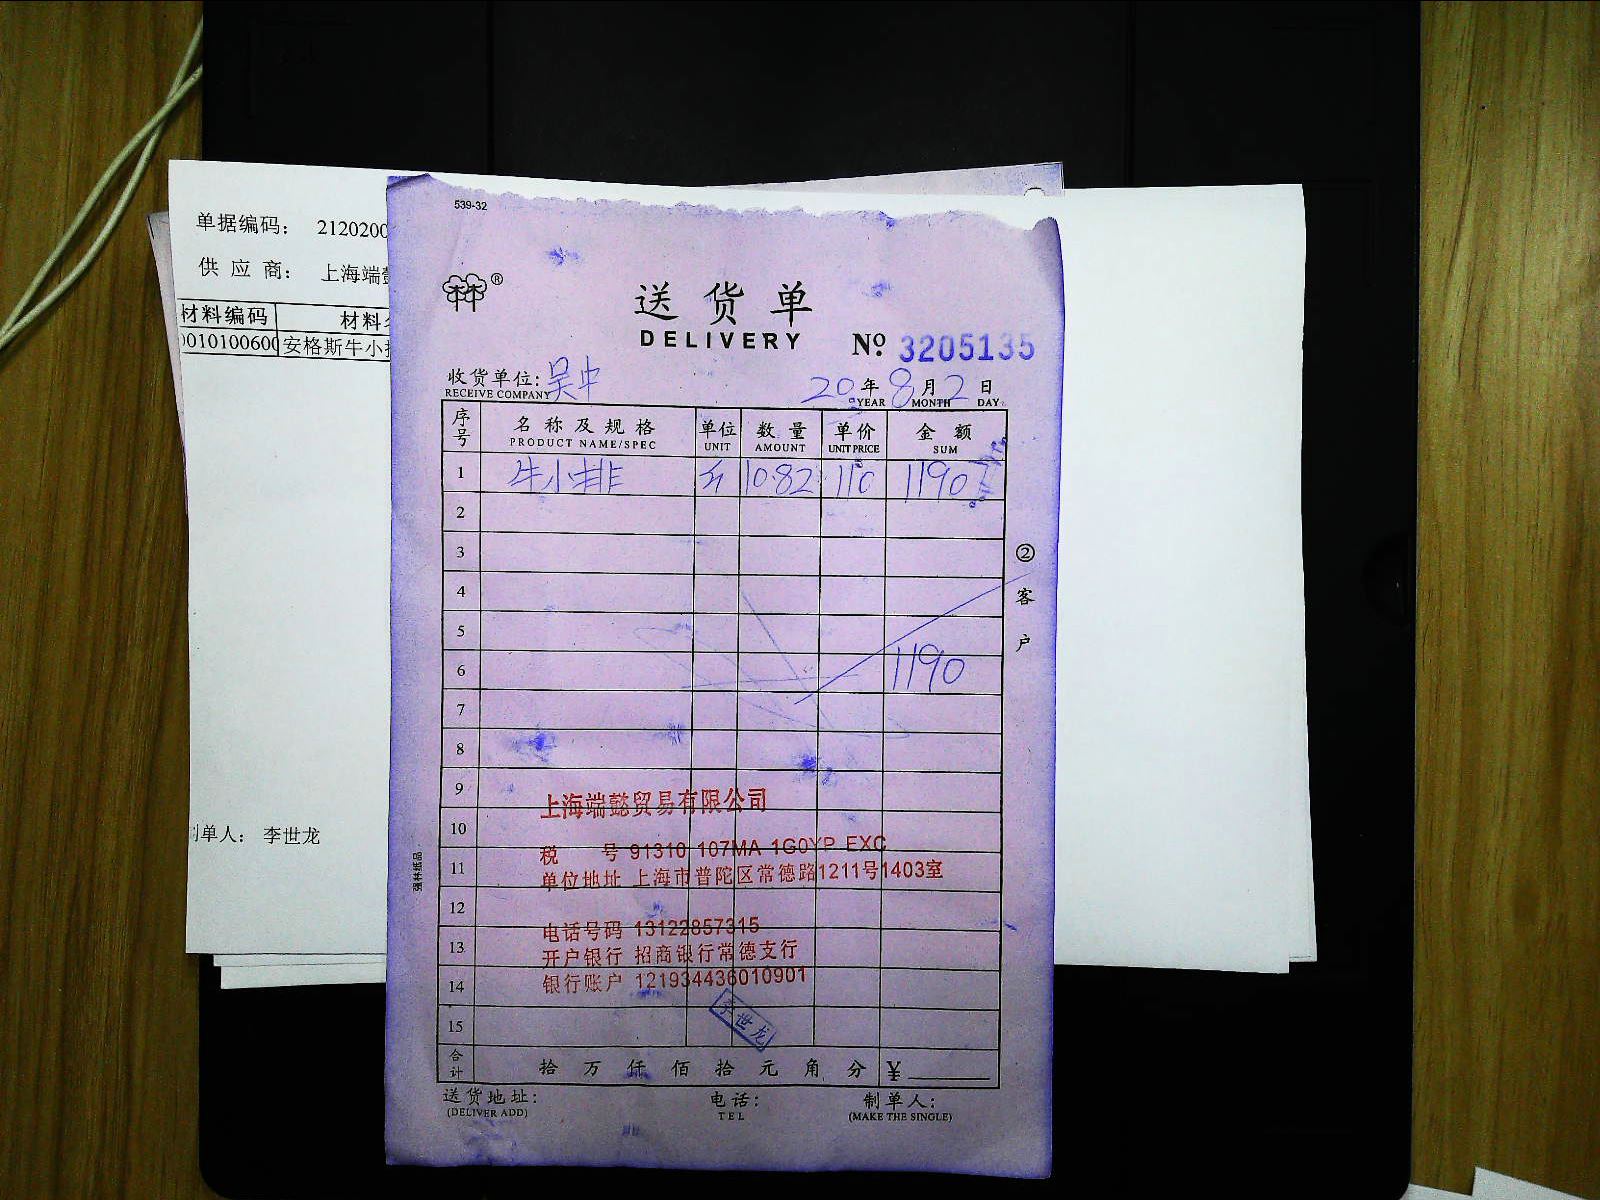 单据编码: 2120200
供 应 商: 上海端
材料编码 材料
010100600 安格斯牛小
制单人: 李世龙
539-32
®
送货单
DELIVERY
№ 3205135
收货单位: 吴中
RECEIVE COMPANY
20年8月2日
YEAR MONTH DAY
序号 名称及规格 单位 数量 单价 金额
PRODUCT NAME/SPEC UNIT AMOUNT UNIT PRICE SUM
1 牛小排 斤 10.82 110 1190
2
3
4
5
6 1190
7
8
9
10
11
12
13
14
15
②客户
上海端懿贸易有限公司
税 号 91310 107MA 1G0YP EXC
单位地址 上海市普陀区常德路1211号1403室
电话号码 13122857315
开户银行 招商银行常德支行
银行账户 121934436010901
李世龙
强林纸品
合计 拾 万 仟 佰 拾 元 角 分 ¥
送货地址: 电话: 制单人:
(DELIVER ADD) TEL (MAKE THE SINGLE)